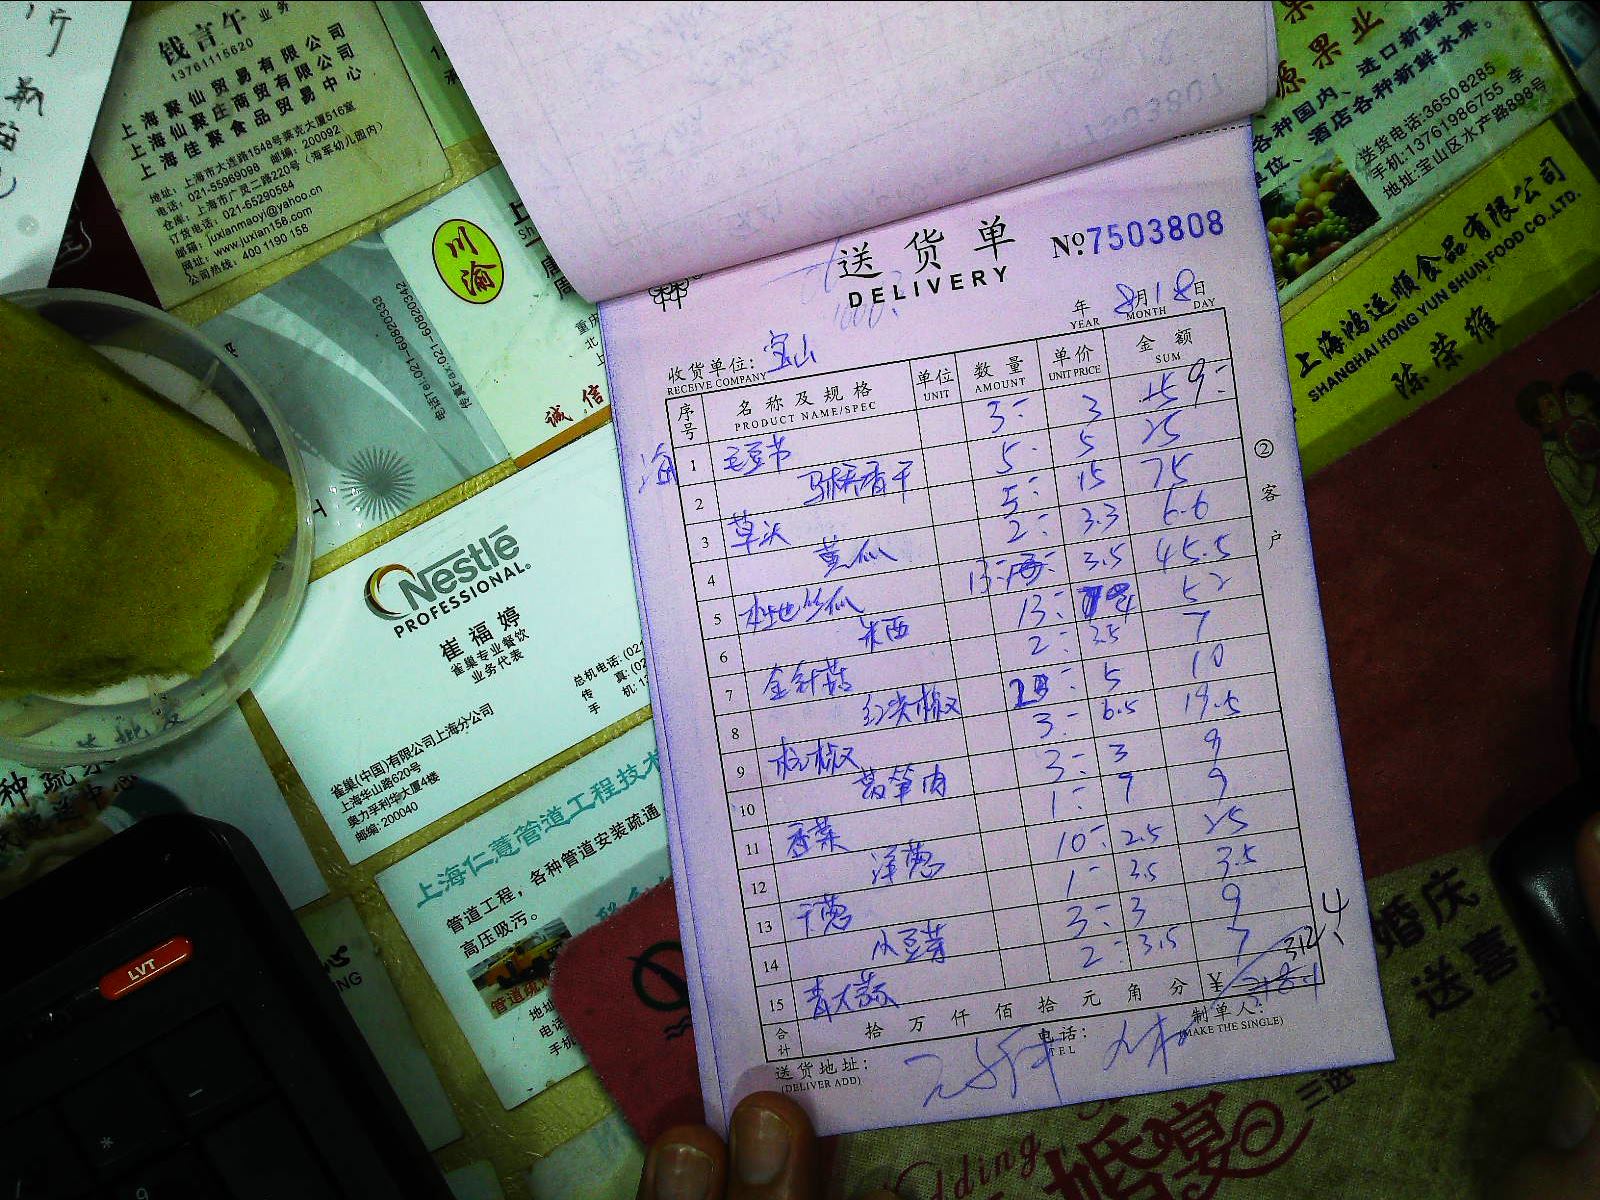 钱言午 业务
13761115620
上海聚仙贸易有限公司
上海仙聚庄商贸有限公司
上海佳聚食品贸易中心
地址: 上海市大连路1548号莱克大厦516室
电话: 021-55969098 邮编: 200092
仓库: 上海市广灵二路220号 (海军幼儿园内)
订货电话: 021-65290584
邮箱: juxianmaoyi@yahoo.cn
网址: www.juxian158.com
公司热线: 400 1190 158
川渝
电话Tel:021-60820333
传真Fax:021-60820342
诚信
Nestlé
PROFESSIONAL.
崔福婷
雀巢专业餐饮
业务代表
总机电话: (02
传 真: (02
手 机: 1
雀巢(中国)有限公司上海分公司
上海华山路620号
奥力孚利华大厦4楼
邮编: 200040
上海仁薏管道工程技术
管道工程, 各种管道安装疏通
高压吸污。
LVT
源果业
各种国内、进口新鲜水
单位、酒店各种新鲜水果。
送货电话:36508285
手机:13761986755 李
地址:宝山区水产路898号
上海鸿运顺食品有限公司
SHANGHAI HONG YUN SHUN FOOD CO.,LTD.
陈荣雍
送货单 No.7503808
DELIVERY
年 8月18日
YEAR MONTH DAY
收货单位: 宝山
RECEIVE COMPANY
序号 名称及规格 单位 数量 单价 金额
PRODUCT NAME/SPEC UNIT AMOUNT UNIT PRICE SUM
1 毛豆节 3- 3 9-
2 马桥香干 5- 5 25
3 草头 5- 15 75
4 黄瓜 2- 3.3 6.6
5 本地丝瓜 13- 3.5 45.5
6 米西 13- 4 52
7 金针菇 2- 3.5 7
8 红尖椒 2- 5 10
9 杭椒 3- 6.5 19.5
10 莴笋肉 3- 3 9
11 香菜 1- 9 9
12 洋葱 10- 2.5 25
13 干葱 1- 3.5 3.5
14 小豆芽 3- 3 9
15 青大蒜 2- 3.5 7
合计 拾 万 仟 佰 拾 元 角 分 ¥ 312.4
送货地址: 电话: 制单人:
(DELIVER ADD) TEL (MAKE THE SINGLE)
②客户
婚庆
送喜
婚宴